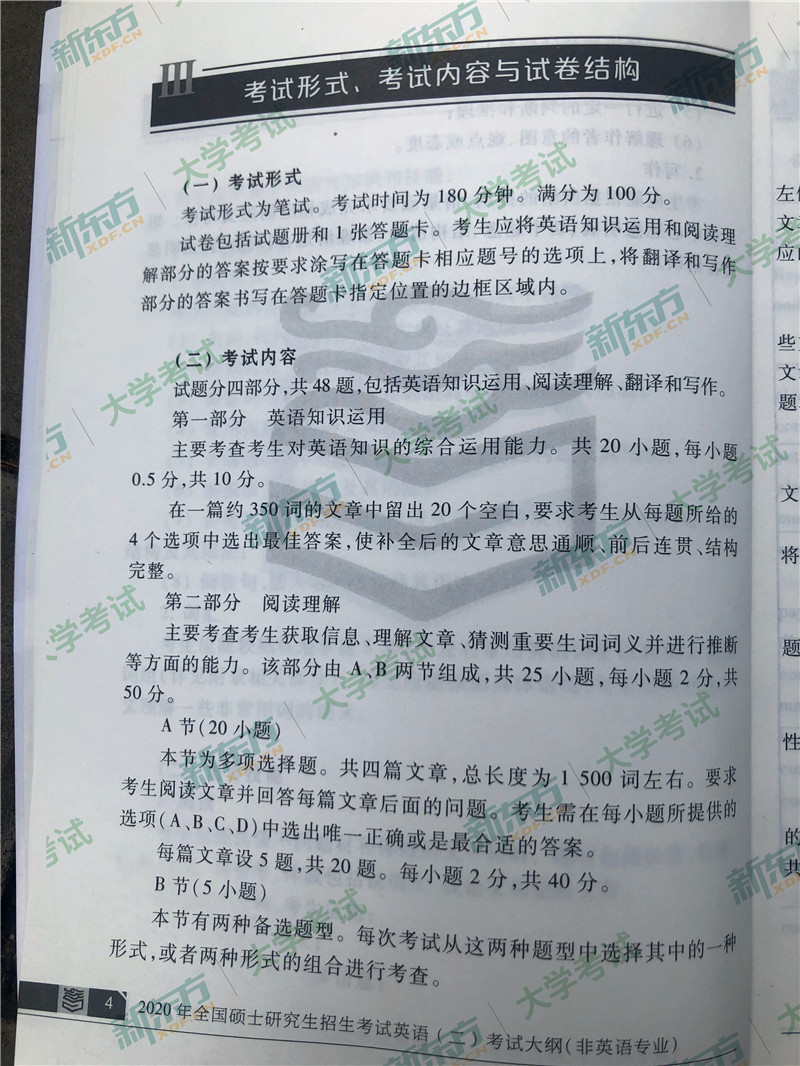 III
考试形式、考试内容与试卷结构
(一)考试形式
考试形式为笔试。考试时间为180分钟。满分为100分。
试卷包括试题册和1张答题卡。考生应将英语知识运用和阅读理
解部分的答案按要求涂写在答题卡相应题号的选项上,将翻译和写作
部分的答案书写在答题卡指定位置的边框区域内。
(二)考试内容
试题分四部分,共48题,包括英语知识运用、阅读理解、翻译和写作。
第一部分 英语知识运用
主要考查考生对英语知识的综合运用能力。共20小题,每小题
0.5分,共10分。
在一篇约350词的文章中留出20个空白,要求考生从每题所给的
4个选项中选出最佳答案,使补全后的文章意思通顺、前后连贯、结构
完整。
第二部分 阅读理解
主要考查考生获取信息、理解文章、猜测重要生词词义并进行推断
等方面的能力。该部分由A、B两节组成,共25小题,每小题2分,共
50分。
A节(20小题)
本节为多项选择题。共四篇文章,总长度为1 500词左右。要求
考生阅读文章并回答每篇文章后面的问题。考生需在每小题所提供的
选项(A、B、C、D)中选出唯一正确或是最合适的答案。
每篇文章设5题,共20题。每小题2分,共40分。
B节(5小题)
本节有两种备选题型。每次考试从这两种题型中选择其中的一种
形式,或者两种形式的组合进行考查。
4
2020年全国硕士研究生招生考试英语(二)考试大纲(非英语专业)
新东方 XDF.CN 大学考试